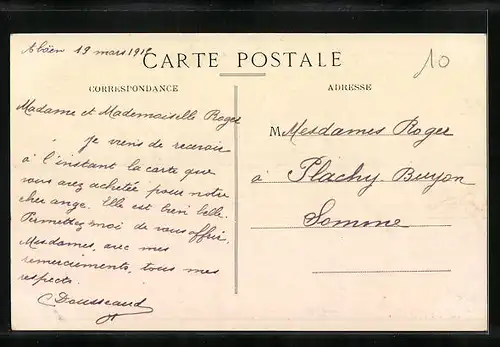 19 mars 191
CARTE POSTALE
10
CORRESPONDANCE
ADRESSE
Madame et Mademoiselle Roger
Je viens de recevoir
à l'instant la carte que
vous avez achetée pour notre
cher ange. Elle est bien belle.
Permettez-moi de vous offrir,
Mesdames, avec mes
remerciements, tous mes
respects.
M Mesdames Roger
à Plachy-Buyon
Somme